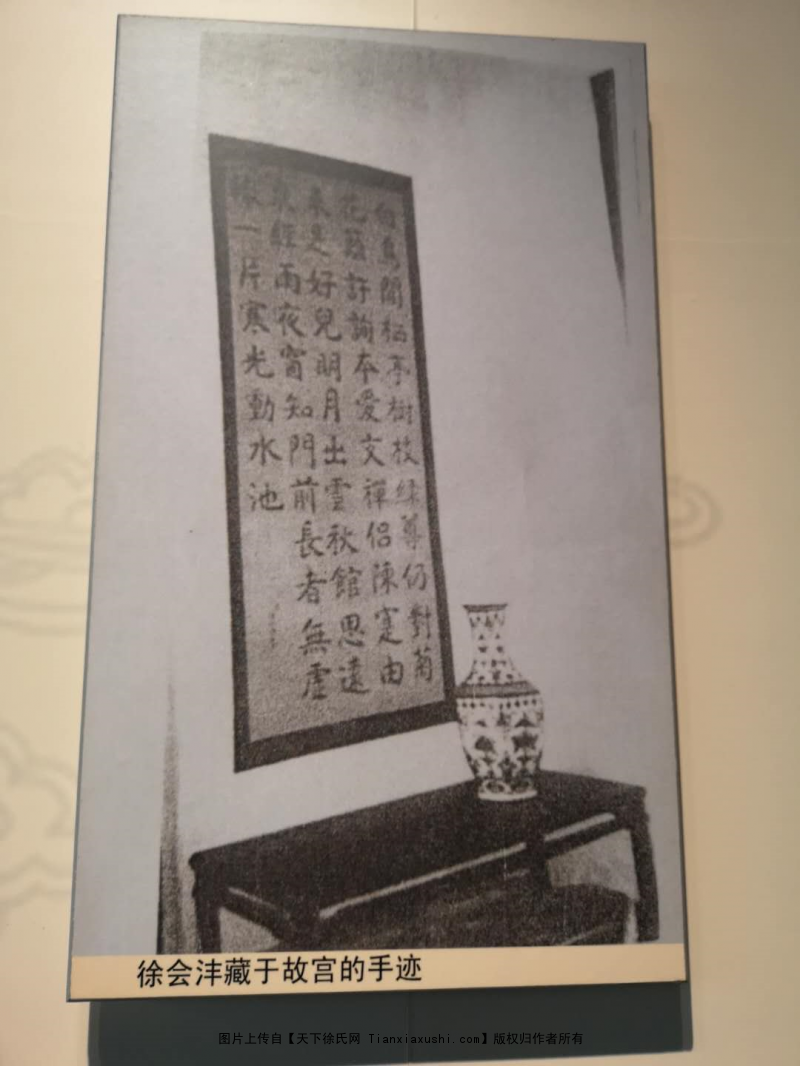 白鳥閒栖亭樹枝綠尊仍對菊
花籬許詢本愛文禪侶陳寔由
來是好兒明月出雲秋館思遠
泉經雨夜窗知門前長者無虛
轍一片寒光動水池
徐会沣藏于故宫的手迹
图片上传自【天下徐氏网 Tianxiaxushi.com】版权归作者所有